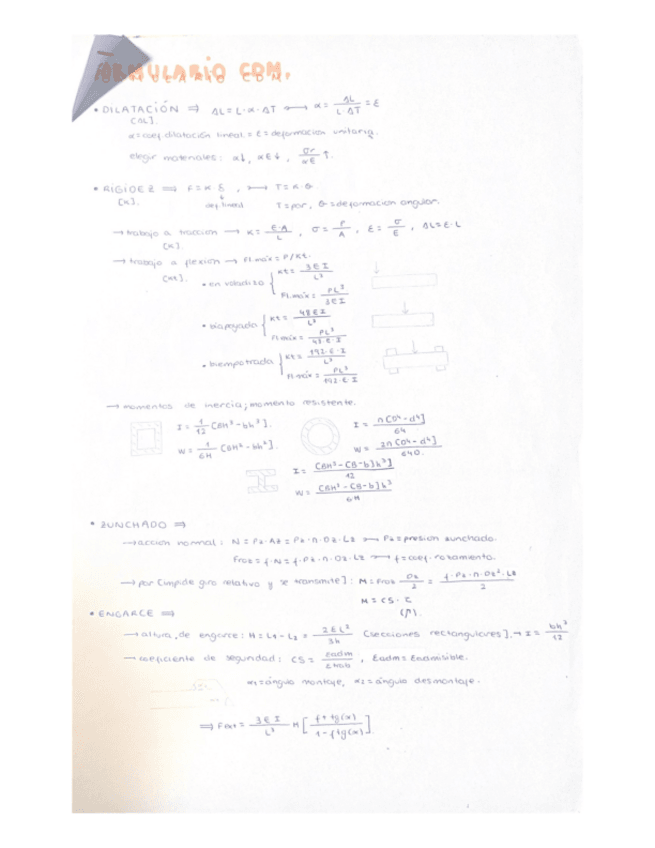 FORMULARIO CDM.
• DILATACIÓN ⇒ ΔL = L·α·ΔT ⟼ α = ΔL / L·ΔT = ε
[ΔL].
α = coef. dilatación lineal. = ε = deformación unitaria.
elegir materiales: α↓, αE↓, σr/αE ↑.
• RIGIDEZ ⟹ F = K·δ, ⟼ T = K·θ
[K]. def. lineal T = par, θ = deformación angular.
→ trabajo a tracción → K = E·A / L, σ = P / A, ε = σ / E, ΔL = ε·L
[K].
→ trabajo a flexión → Fl.máx = P/Kt.
[Kt].
• en voladizo { Kt = 3EI / L³
Fl.máx = PL³ / 3EI
• biapoyada { Kt = 48EI / L³
Fl.máx = PL³ / 48·E·I
• biempotrada { Kt = 192·E·I / L³
Fl.máx = PL³ / 192·E·I
→ momentos de inercia; momento resistente.
I = 1/12 [BH³ - bh³]. I = π[D⁴ - d⁴] / 64
W = 1/6H [BH³ - bh³]. W = 2π[D⁴ - d⁴] / 64D.
I = [BH³ - [B-b]h³] / 12
W = [BH³ - [B-b]h³ / 6H
• ZUNCHADO ⟹
→ acción normal: N = Pz·Az = Pz·π·Dz·Lz ⟼ Pz = presión zunchado.
Froz = f·N = f·Pz·π·Dz·Lz ⟼ f = coef. rozamiento.
→ par [impide giro relativo y se transmite]: M = Froz Dz / 2 = f·Pz·π·Dz²·Lz / 2
M = CS·
• ENGARCE ⟹
→ altura de engarce: H = L1 - L2 = 2εL² / 3h [secciones rectangulares]. → I = bh³ / 12
→ coeficiente de seguridad: CS = εadm / εtrab, εadm = εadmisible.
α1 = ángulo montaje, α2 = ángulo desmontaje.
⟹ Fext = 3EI / L³ H [ f + tg(α) / 1 - f tg(α) ]